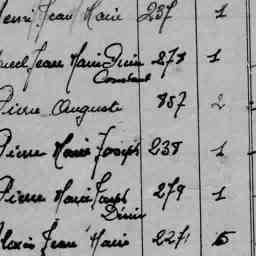 Henri Jean Marie 237 1
Marcel Jean Marie 278 1
Constant
Pierre Auguste 857 2
Pierre Marie Joseph 238 1
Pierre Marie Joseph 279 1
Désiré
Alexis Jean Marie 2271